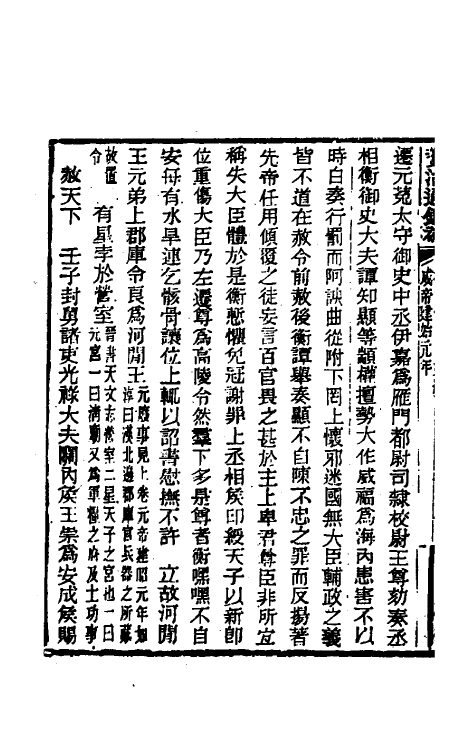 資治通鑑補 成帝建始元年
遷元菟太守御史中丞伊嘉爲雁門都尉司隸校尉王尊劾奏丞
相衡御史大夫譚知顯等顓權擅勢大作威福爲海內患害不以
時白奏行罰而阿諛曲從附下罔上懷邪迷國無大臣輔政之義
皆不道在赦令前赦後衡譚舉奏顯不自陳不忠之罪而反揚著
先帝任用傾覆之徒妄言百官畏之甚於主上卑君尊臣非所宜
稱失大臣體於是衡慙懼免冠謝罪上丞相侯印綬天子以新卽
位重傷大臣乃左遷尊爲高陵令然羣下多是尊者衡嘿嘿不自
安每有水旱連乞骸骨讓位上輒以詔書慰撫不許 立故河閒
王元弟上郡庫令良爲河閒王 元廢事見上卷元帝建昭元年如
淳曰漢北邊郡庫官兵器之所藏
故置
令 有星孛於營室 晉書天文志營室二星天子之宮也一曰
元宮一曰淸廟又爲軍糧之府及土功事
赦天下 壬子封舅諸吏光祿大夫關內侯王崇爲安成侯賜